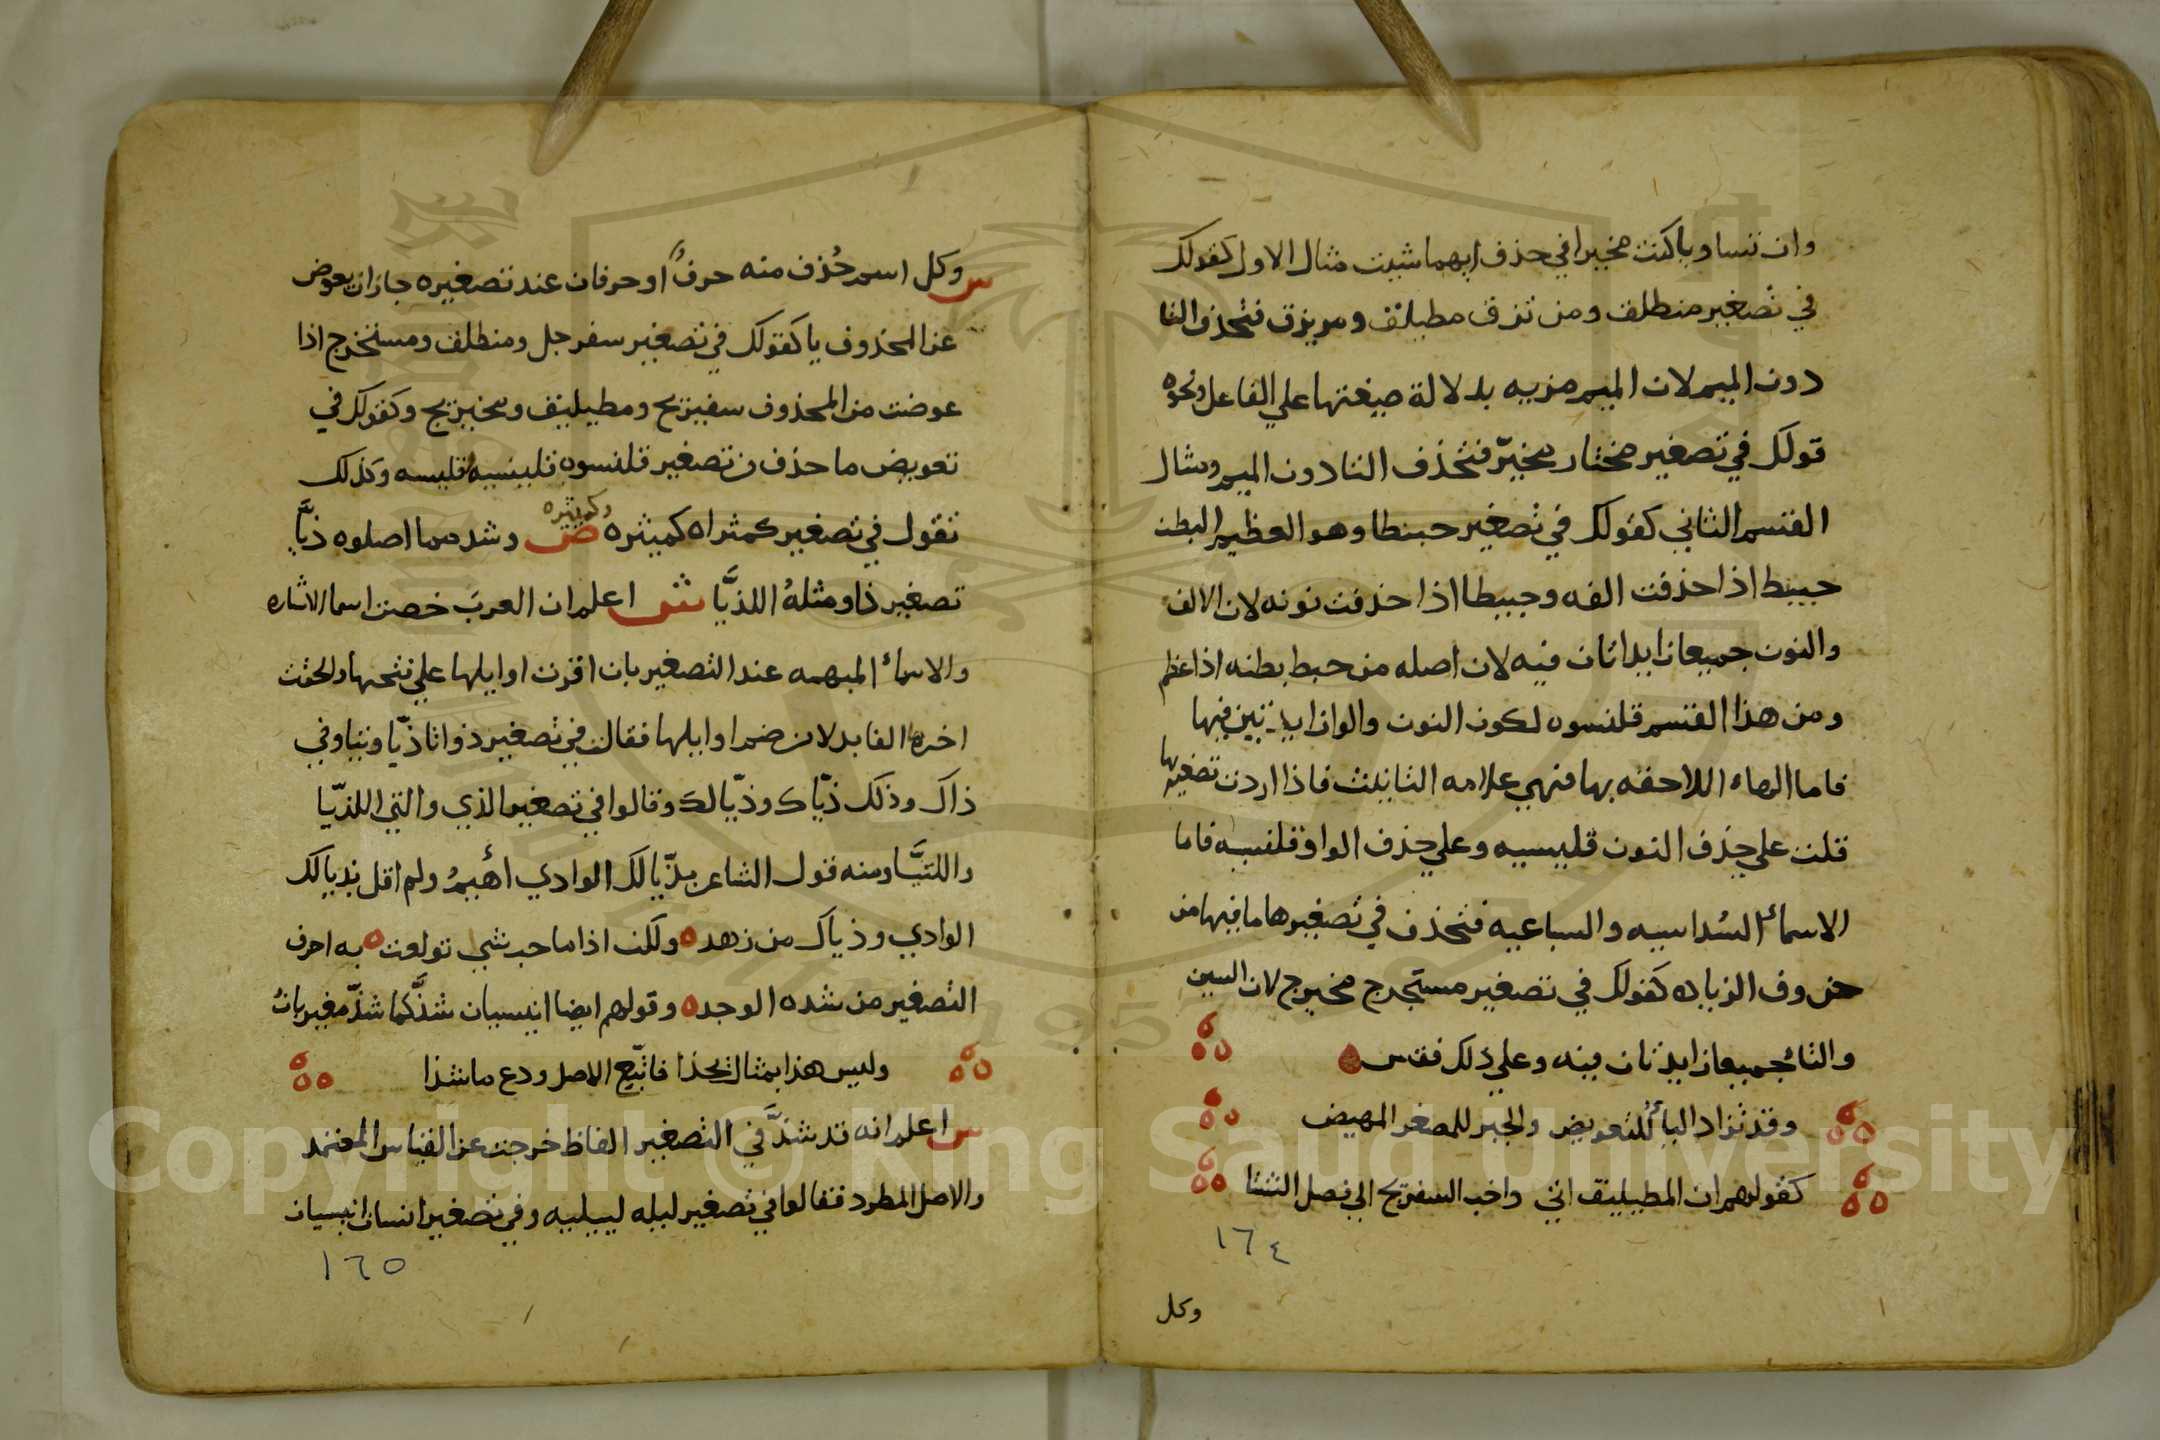 وان تتساويا كنت مخيرا في حذف ايهما شيت مثال الاول كقولك
في تصغير منطلق ومنزق مطيلق ومزيزق فتحذف النا
دون الميم لان الميم مزيه بدلالة صيغتها علي الفاعل ونحوه
قولك في تصغير مختار مخيّر فتحذف التا دون الميم ومثال
القسم الثاني كقولك في تصغير حبنطا وهو العظيم البطن
حبيط اذا حذفت الفه وحبيطا اذا حذفت نونه لان الالف
والنون جميعا زايدتان فيه لان اصله من حبط بطنه اذا عظم
ومن هذا القسم قلنسوه لكون النون والواو زايدتين فيها
فاما الهاء اللاحقه بها فهي علامه التانيث فاذا اردت تصغيرها
قلت علي حذف النون قليسيه وعلي حذف الواو قلنسه فاما
الاسماء السداسيه والسباعيه فتحذف في تصغيرها ما فيها من
حروف الزياده كقولك في تصغير مستخرج مخيرج لان السين
والتاء جميعا زايدتان فيه وعلي ذلك فقس
وقد تزاد الياء للتعويض والجبر للمصغر المهيض
كقولهم ان المطيليق اتي واخب السفيريج الي فصل الشتا
١٦٤
وكل
س وكل اسم حُذف منه حرفٌ او حرفان عند تصغيره جاز ان يعوض
عن المحذوف يا كقولك في تصغير سفرجل ومنطلق ومستخرج اذا
عوضت من المحذوف سفيريج ومطيليق ومخيريج وكقولك في
تعويض ما حذف من تصغير قلنسوه قلينسيه وقليسه وكذلك
وكميثره
تقول في تصغير كمثراه كميثره ص وشذ مما اصلوه ذيَّا
تصغير ذا ومثلهُ اللذيَّا ش اعلم ان العربَ خصت اسما الاشاره
والاسماء المبهمه عند التصغير بان اقرت اوايلها علي فتحها والحقت
اخرها الفا بدلا من ضم اوايلها فقالت في تصغير ذا وتا ذيّا وتيا وفي
ذاك وذلك ذيّاك وذيّالك وقالوا في تصغير الذي والتي اللذيّا
واللتيَّا ومنه قول الشاعر بذيّالك الوادي اهيمُ ولم اقل بذيالك
الوادي وذياك من زهد ه ولكن اذا ما حب شي تولعت ه به احرف
التصغير من شده الوجد ه وقولهم ايضا انيسيان شذَّ كما شذّ مغيربانُ
وليس هذا بمثال يحذا فاتّبع الاصل ودع ما شذا
س اعلم انه قد شذَّ في التصغير الفاظ خرجت عن القياس المعتمد
والاصل المطرد فقالوا في تصغير ليله لييليه وفي تصغير انسان انيسيان
١٦٥
Copyright © King Saud University